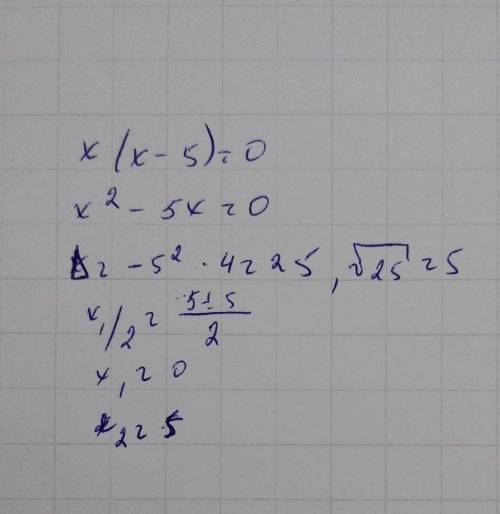 x(x-5)=0
x²-5x=0
D=-5²·4=25, √25=5
x₁/₂=(5±5)/2
x₁=0
x₂=5